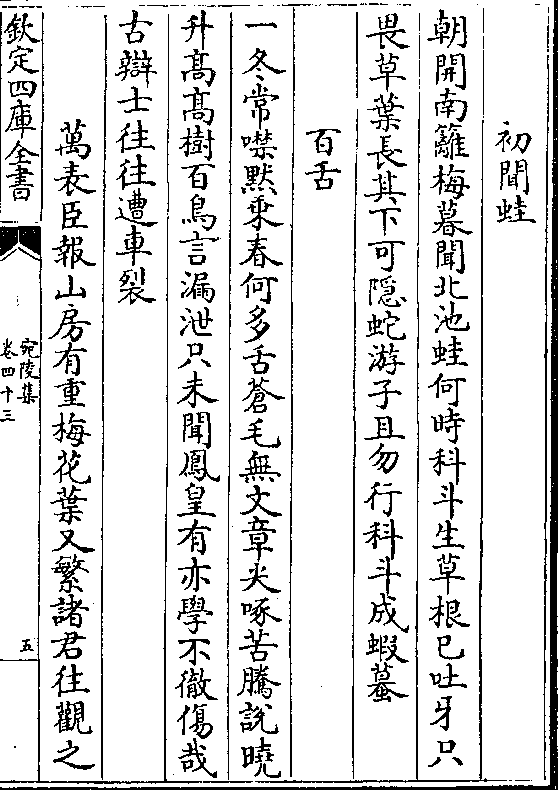 初聞蛙
朝開南籬梅暮聞北池蛙何時科斗生草根已吐牙只
畏草葉長其下可隠蛇游子且勿行科斗成蝦蟇
百舌
一冬常噤黙乗春何多舌蒼毛無文章尖啄苦騰說曉
升髙髙樹百鳥言漏泄只未聞鳳皇有亦學不徹傷哉
古辯士往往遭車裂
萬表臣報山房有重梅花葉又繁諸君往觀之
欽定四庫全書
宛陵集
卷四十三
五